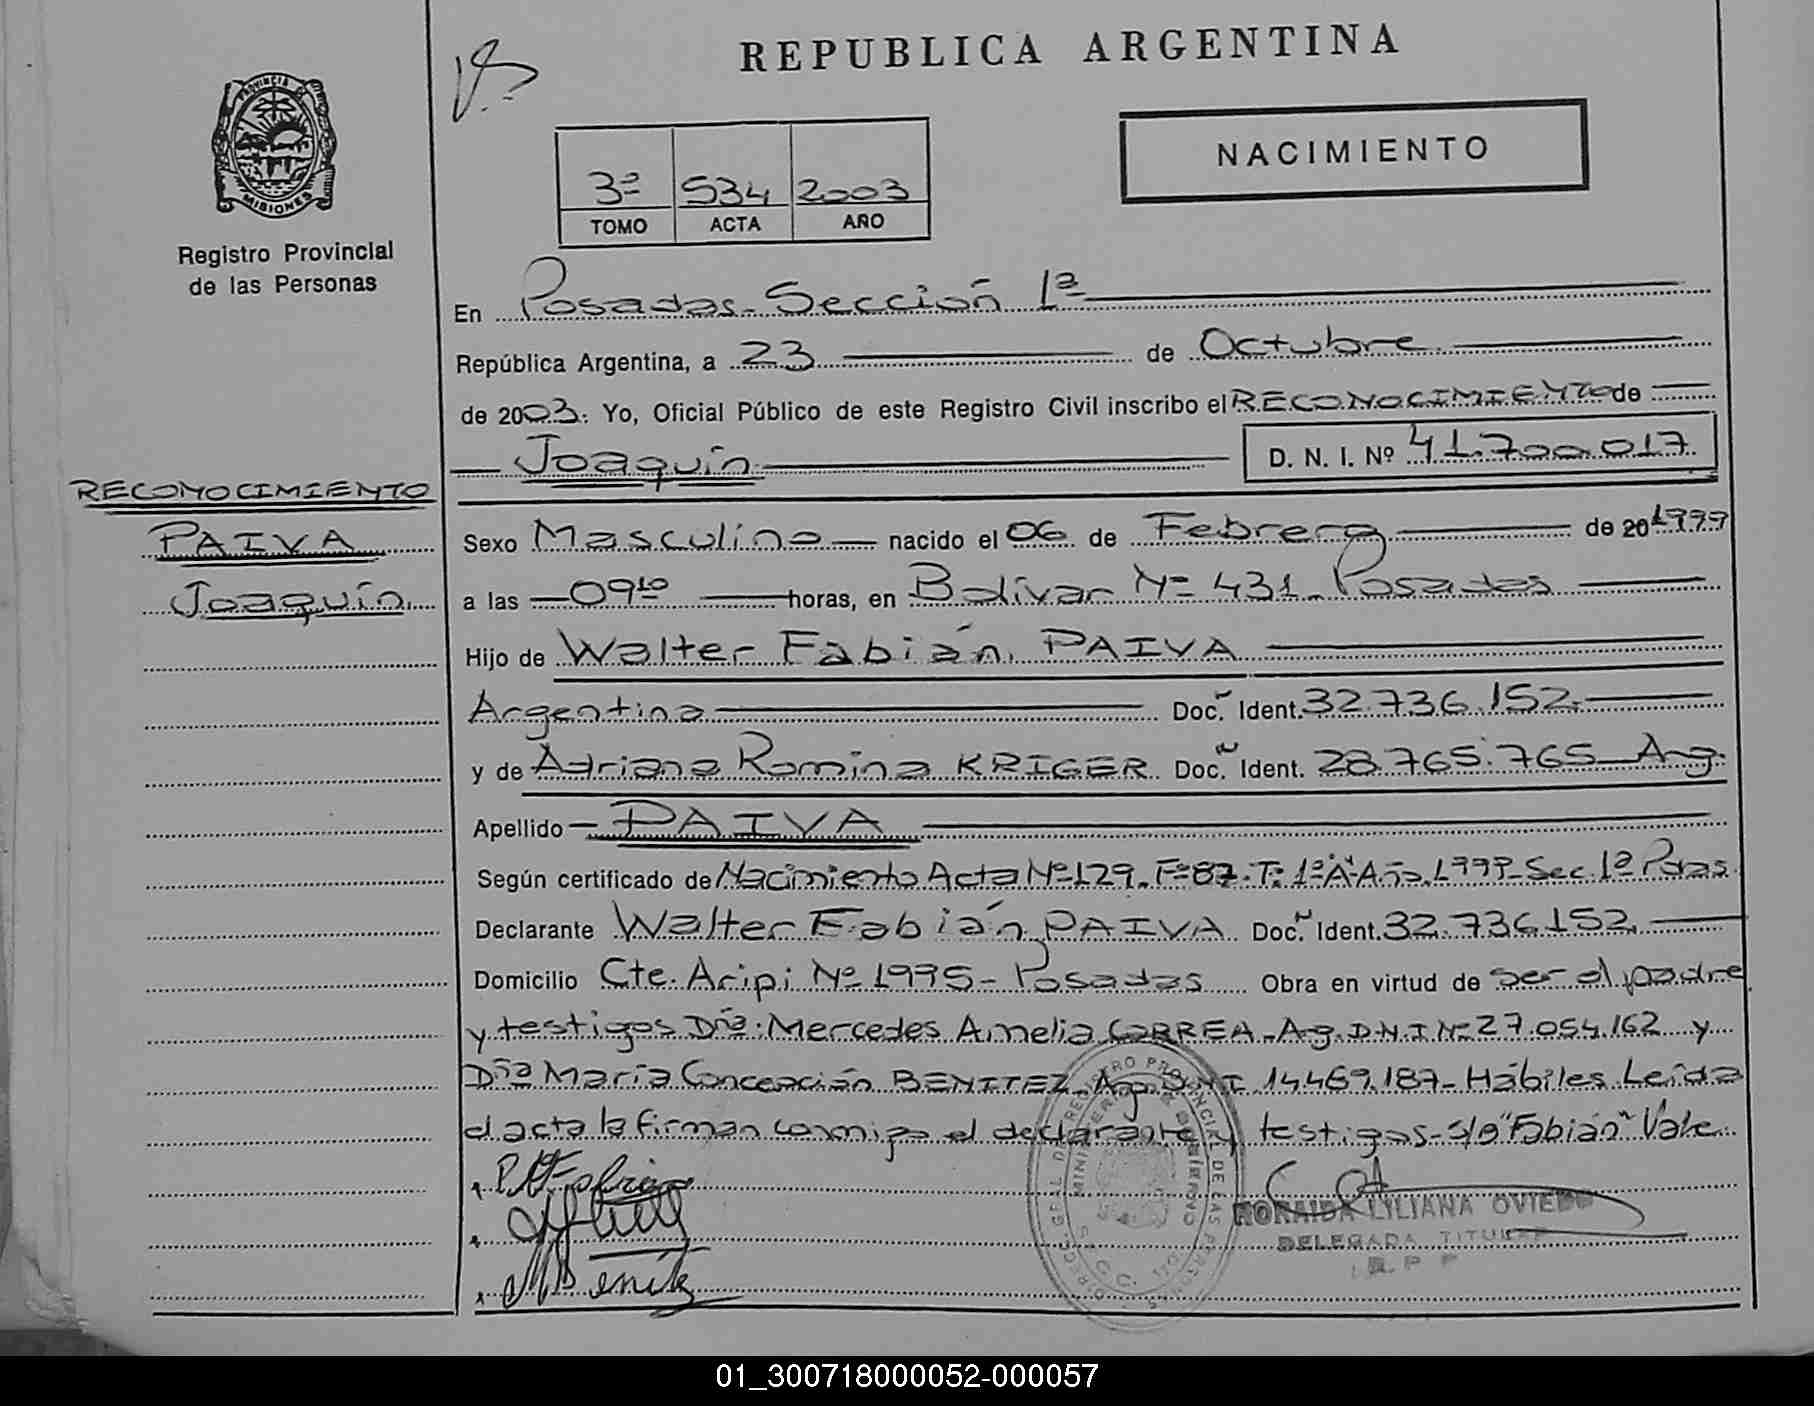 REPUBLICA ARGENTINA
PROVINCIA DE
MISIONES
Registro Provincial
de las Personas
NACIMIENTO
3º 534 2003
TOMO ACTA AÑO
En Posadas - Sección 1ª
República Argentina, a 23 de Octubre
de 2003. Yo, Oficial Público de este Registro Civil inscribo el RECONOCIMIENTO de
Joaquín
D. N. I. Nº 41.700.017
RECONOCIMIENTO
PAIVA
Joaquín
Sexo Masculino nacido el 06 de Febrero de 20 1999
a las 09 10 horas, en Bolivar Nº 431 - Posadas
Hijo de Walter Fabián PAIVA
Argentina Doc. Ident. 32.736.152
y de Adriana Romina KRIGER Doc. Ident. 28.765.765 Ag.
Apellido PAIVA
Según certificado de Nacimiento Acta Nº 129. Fº 87. Tº 1º "A" Año 1999 - Sec. 1ª Pdas.
Declarante Walter Fabián PAIVA Doc. Ident. 32.736.152
Domicilio Cte. Aripi Nº 1995 - Posadas Obra en virtud de ser el padre
y testigos Dña: Mercedes Amelia CORREA - Ag. D.N.I Nº 27.054.162 y
Dña María Concepción BENITEZ Ag. DNI 14.469.187 - Hábiles Leída
el acta la firman conmigo el declarante y testigos - s/r "Fabián" Vale
HORAIDA LILIANA OVIEDO
DELEGADA TITULAR
R. P. P.
01_300718000052-000057